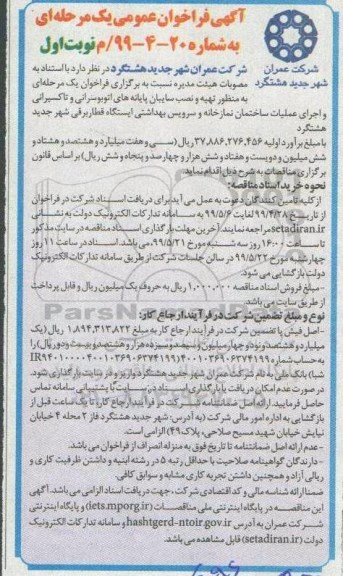 آگهی فراخوان عمومی یک مرحله‌ای
به شماره ۲۰-۴-۹۹/م نوبت اول
شرکت عمران
شهر جدید هشتگرد
شرکت عمران شهر جدید هشتگرد در نظر دارد با استناد به
مصوبات هیئت مدیره نسبت به برگزاری فراخوان یک مرحله‌ای
به منظور تهیه و نصب سایبان پایانه های اتوبوسرانی و تاکسیرانی
و اجرای عملیات ساختمان نمازخانه و سرویس بهداشتی ایستگاه قطار برقی شهر جدید
هشتگرد
با مبلغ برآورد اولیه ۳۷,۸۸۶,۲۷۶,۴۵۶ ریال (سی و هفت میلیارد و هشتصد و هشتاد و
شش میلیون و دویست و هفتاد و شش هزار و چهارصد و پنجاه و شش ریال) بر اساس قانون
برگزاری مناقصات به شرح ذیل اقدام نماید.
نحوه خرید اسناد مناقصه:
از کلیه تامین کنندگان دعوت به عمل می آید برای دریافت اسناد شرکت در فراخوان
از تاریخ ۹۹/۴/۲۸ لغایت ۹۹/۵/۶ به سامانه تدارکات الکترونیک دولت به نشانی
setadiran.ir مراجعه نمایند. آخرین مهلت بارگذاری اسناد مناقصه در سایت مذکور
تا ساعت ۱۶:۰۰ روز سه شنبه مورخ ۹۹/۵/۲۱ می باشد. اسناد در ساعت ۱۱ روز
چهارشنبه مورخ ۹۹/۵/۲۲ در سالن جلسات شرکت از طریق سامانه تدارکات الکترونیک
دولت بازگشایی می شود.
- مبلغ فروش اسناد مناقصه ۱,۰۰۰,۰۰۰ ریال به حروف یک میلیون ریال و قابل پرداخت
از طریق سایت می باشد.
نوع و مبلغ تضمین شرکت در فرآیند ارجاع کار:
- اصل فیش یا تضمین شرکت در فرآیند ارجاع کار به مبلغ ۱,۸۹۴,۳۱۳,۸۲۲ ریال (یک
میلیارد و هشتصد و نود و چهار میلیون و سیصد و سیزده هزار و هشتصد و بیست و دو ریال) را
به حساب شماره ۴۰۰۱۰۳۶۹۰۶۳۷۴۱۹۹ (IR۹۴۰۱۰۰۰۰۴۰۰۱۰۳۶۹۰۶۳۷۴۱۹۹
شبا) بانک ملی به نام شرکت عمران شهر جدید هشتگرد واریز و در سایت بارگذاری شود.
در صورت عدم امکان دریافت یا بارگذاری اسناد در سایت با پشتیبانی سامانه تماس
حاصل فرمایید. ارائه اصل ضمانتنامه شرکت در فرآیند ارجاع کار تا یک ساعت قبل از
بازگشایی به اداره امور مالی شرکت (به آدرس: شهر جدید هشتگرد فاز ۲ محله ۴ خیابان
نیایش خیابان شهید مسیح صلاحی، پلاک ۴۹) الزامی است.
- عدم ارائه اصل ضمانتنامه تا تاریخ فوق به منزله انصراف از فراخوان می باشد.
- دارندگان گواهینامه صلاحیت با حداقل رتبه ۵ در رشته ابنیه و داشتن ظرفیت کاری و
ریالی آزاد و همچنین داشتن تجربه کاری مشابه و سوابق کافی.
ضمنا ارائه شناسه ملی و کد اقتصادی شرکت، جهت دریافت اسناد الزامی می باشد. آگهی
این مناقصه در پایگاه اینترنتی ملی مناقصات (iets.mporg.ir) و پایگاه اینترنتی
شرکت عمران به آدرس hashtgerd-ntoir.gov.ir و سامانه تدارکات الکترونیک
دولت (setadiran.ir) قابل مشاهده می باشد.